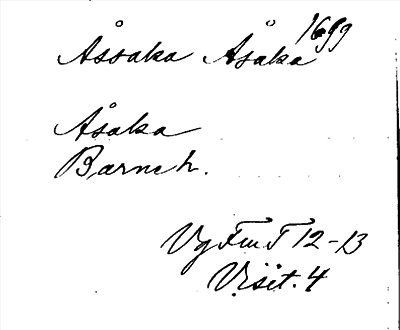 Åssaka Åsaka 1699
Åsaka
Barneh.
Vg Fm T 12-13
Visit. 4